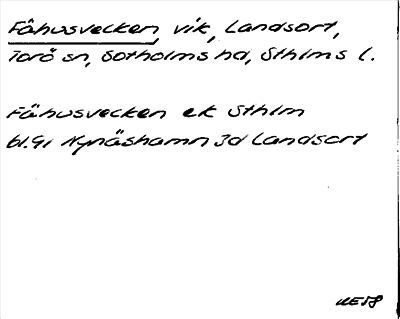 Fähusvecken, vik, Landsort,
Torö sn, Sotholms hd, Sthlms l.
Fähusvecken ek Sthlm
bl. 91 Nynäshamn 3d Landsort